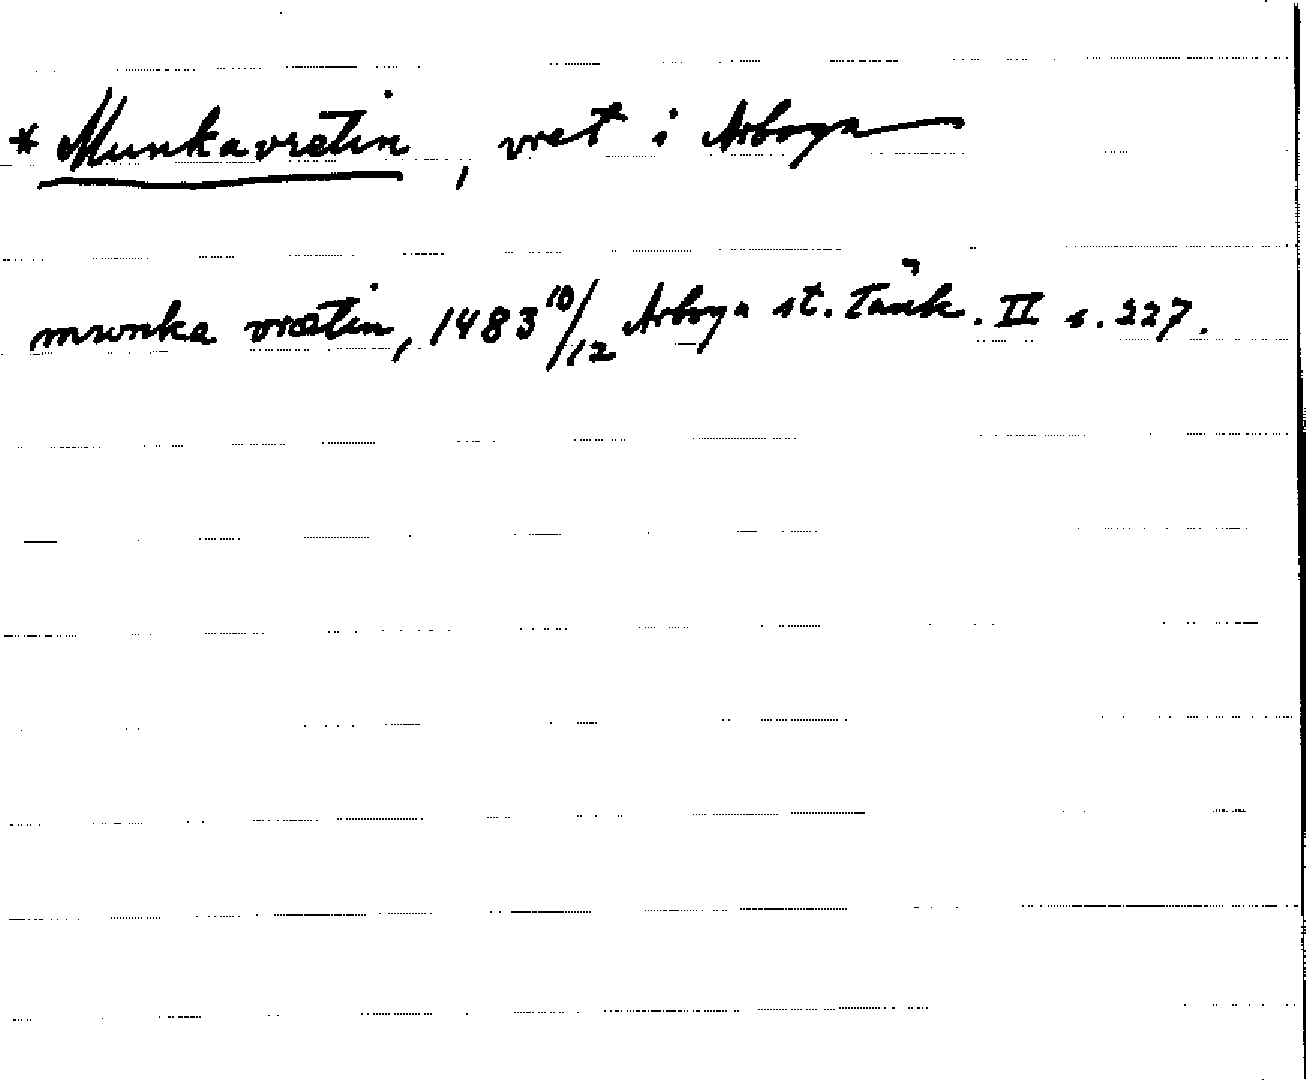 * Munkavretin, vret i Arboga
munka vrætin, 1483 10/12 Arboga st. tänk. II s. 227.